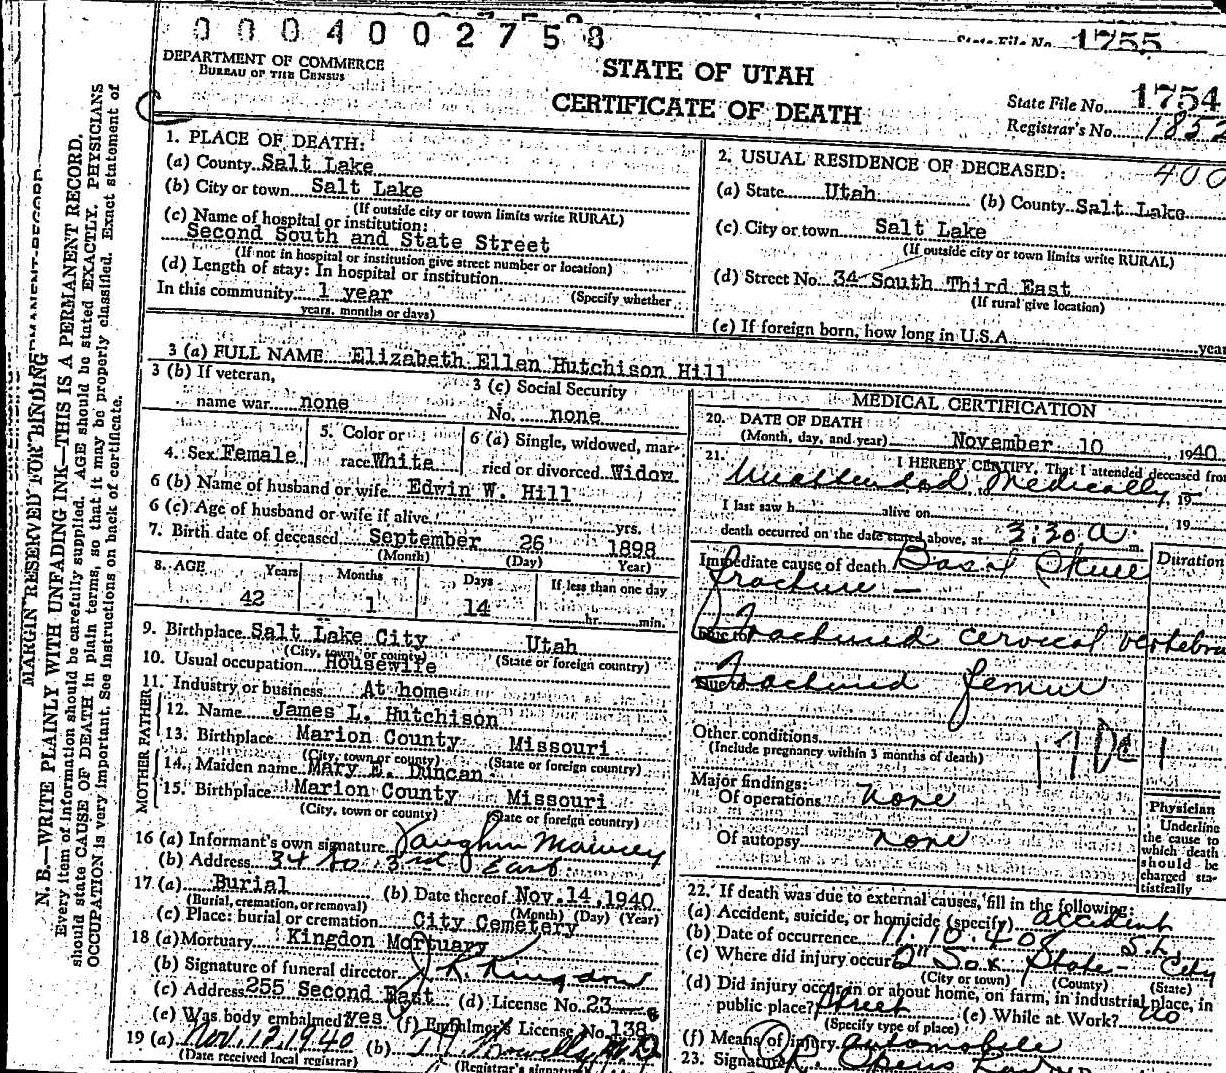 0004002758
State File No. 1755
DEPARTMENT OF COMMERCE
BUREAU OF THE CENSUS
STATE OF UTAH
CERTIFICATE OF DEATH
State File No. 1754
Registrar's No. 1852
400
MARGIN RESERVED FOR BINDING
N. B.—WRITE PLAINLY WITH UNFADING INK—THIS IS A PERMANENT RECORD.
Every item of information should be carefully supplied. AGE should be stated EXACTLY. PHYSICIANS
should state CAUSE OF DEATH in plain terms, so that it may be properly classified. Exact statement of
OCCUPATION is very important. See instructions on back of certificate.
1. PLACE OF DEATH:
(a) County Salt Lake
(b) City or town Salt Lake
(If outside city or town limits write RURAL)
(c) Name of hospital or institution:
Second South and State Street
(If not in hospital or institution give street number or location)
(d) Length of stay: In hospital or institution
(Specify whether
In this community 1 year
years, months or days)
2. USUAL RESIDENCE OF DECEASED:
(a) State Utah (b) County Salt Lake
(c) City or town Salt Lake
(If outside city or town limits write RURAL)
(d) Street No. 34 South Third East
(If rural give location)
(e) If foreign born, how long in U.S.A. year
3 (a) FULL NAME Elizabeth Ellen Hutchison Hill
3 (b) If veteran,
name war none
3 (c) Social Security
No. none
4. Sex Female
5. Color or
race White
6 (a) Single, widowed, mar-
ried or divorced Widow
6 (b) Name of husband or wife Edwin W. Hill
6 (c) Age of husband or wife if alive yrs.
7. Birth date of deceased September 26 1898
(Month) (Day) Year)
8. AGE Years Months Days If less than one day
42 1 14 hr. min.
9. Birthplace Salt Lake City Utah
(City, town, or county) (State or foreign country)
10. Usual occupation Housewife
11. Industry or business At home
FATHER
12. Name James L. Hutchison
13. Birthplace Marion County Missouri
(City, town or county) (State or foreign country)
MOTHER
14. Maiden name Mary E. Duncan
15. Birthplace Marion County Missouri
(City, town or county) (State or foreign country)
16 (a) Informant's own signature Vaughn
(b) Address 34 So 3rd East
17. (a) Burial (b) Date thereof Nov. 14, 1940
(Burial, cremation, or removal) (Month) (Day) (Year)
(c) Place: burial or cremation City Cemetery
18 (a) Mortuary Kingdon Mortuary
(b) Signature of funeral director J R. Kingdon
(c) Address 255 Second East (d) License No. 23
(e) Was body embalmed yes (f) Embalmer's License No. 138
19 (a) Nov. 12, 1940 (b)
(Date received local registrar) (Registrar's signature
MEDICAL CERTIFICATION
20. DATE OF DEATH
(Month, day, and year) November 10 , 1940
21. I HEREBY CERTIFY, That I attended deceased from
Unattended Medically, 19
I last saw h alive on , 19
death occurred on the date stated above, at 3:30 A m.
Immediate cause of death Basal Skull
fracture —
Duration
Due to Fractured cervical vertebra
Due to Fractured femur
Other conditions
(Include pregnancy within 3 months of death)
Major findings:
Of operations None
Of autopsy none
Physician
Underline
the cause to
which death
should be
charged sta-
tistically
22. If death was due to external causes, fill in the following:
(a) Accident, suicide, or homicide (specify) accident
(b) Date of occurrence 11.10.40
(c) Where did injury occur 2nd So x State - City
(City or town) (County) (State)
(d) Did injury occur in or about home, on farm, in industrial place, in
public place? Street (e) While at Work? no
(Specify type of place)
(f) Means of injury automobile
23. Signature